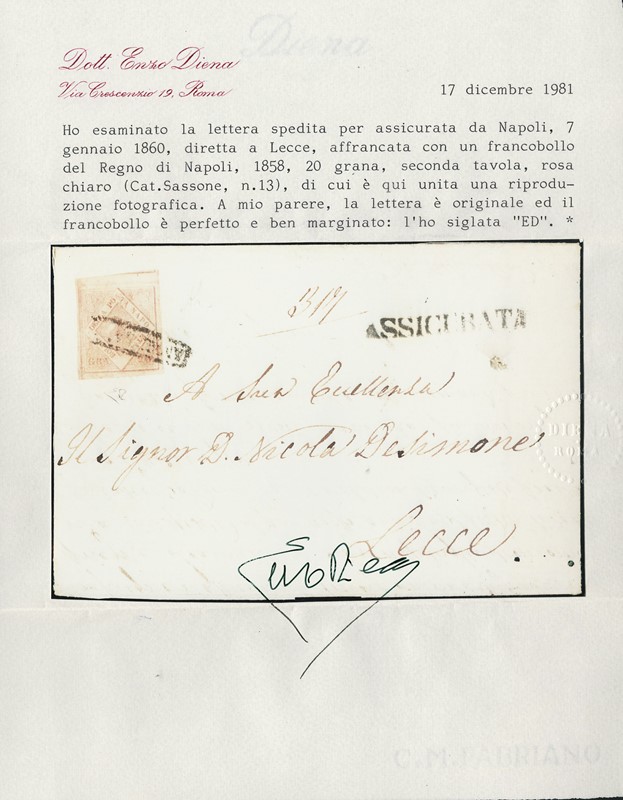 Diena
Dott. Enzo Diena
Via Crescenzio 19, Roma
17 dicembre 1981
Ho esaminato la lettera spedita per assicurata da Napoli, 7
gennaio 1860, diretta a Lecce, affrancata con un francobollo
del Regno di Napoli, 1858, 20 grana, seconda tavola, rosa
chiaro (Cat.Sassone, n.13), di cui è qui unita una riprodu-
zione fotografica. A mio parere, la lettera è originale ed il
francobollo è perfetto e ben marginato: l'ho siglata "ED". *
ASSICURATA
A Sua Eccellenza
Il Signor D. Nicola Desimone
Lecce
DIENA
ROMA
C.M.FABRIANO